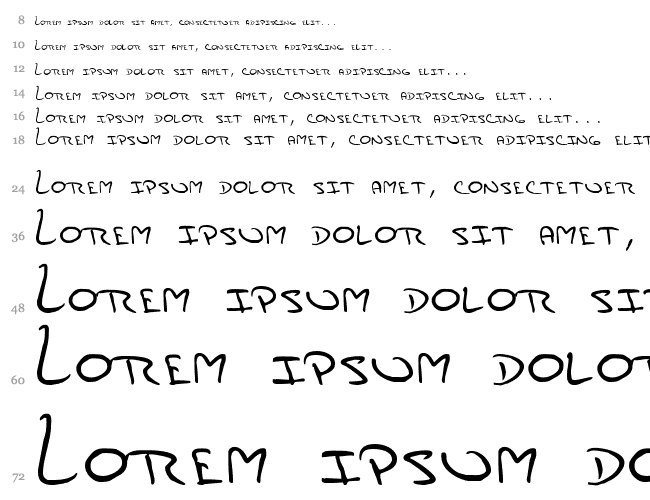 8 Lorem ipsum dolor sit amet, consectetuer adipiscing elit...
10 Lorem ipsum dolor sit amet, consectetuer adipiscing elit...
12 Lorem ipsum dolor sit amet, consectetuer adipiscing elit...
14 Lorem ipsum dolor sit amet, consectetuer adipiscing elit...
16 Lorem ipsum dolor sit amet, consectetuer adipiscing elit...
18 Lorem ipsum dolor sit amet, consectetuer adipiscing elit
24 Lorem ipsum dolor sit amet, consectetuer
36 Lorem ipsum dolor sit amet,
48 Lorem ipsum dolor sit
60 Lorem ipsum dolo
72 Lorem ipsum do